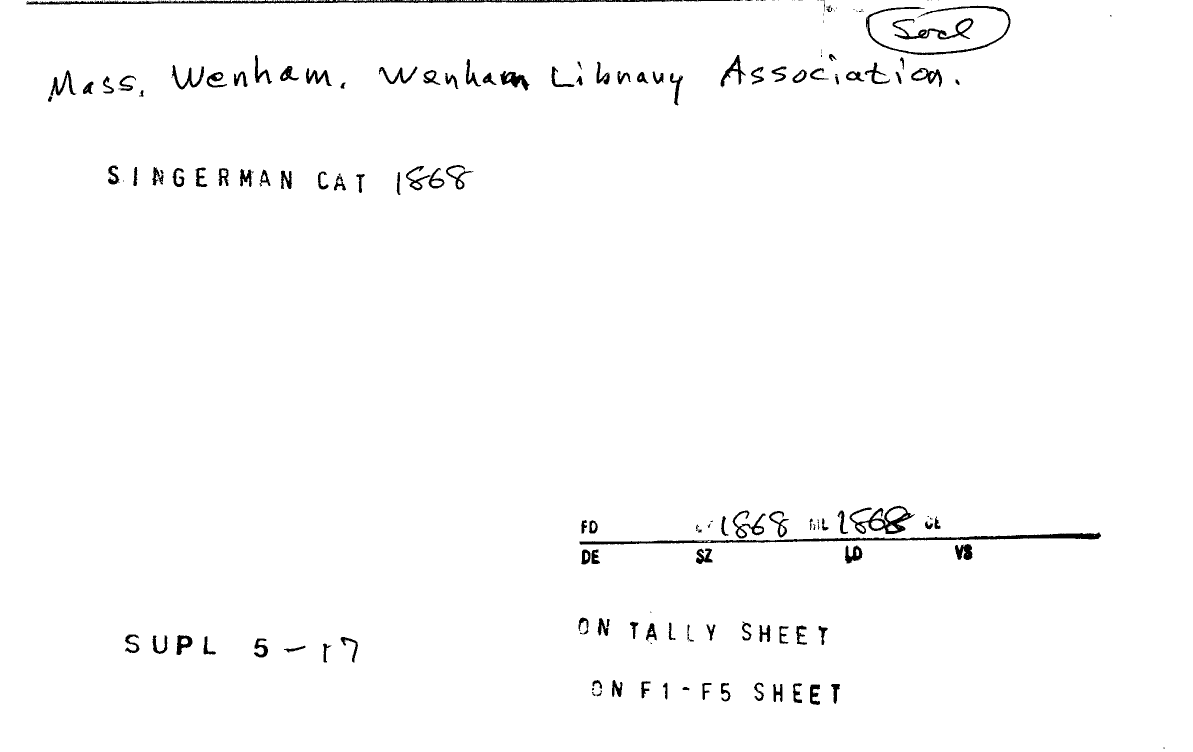 Socl
Mass, Wenham. Wenham Library Association.
SINGERMAN CAT 1868
FD 1868 ML 1868 CL
DE SZ LD VS
SUPL 5-17
ON TALLY SHEET
ON F1-F5 SHEET